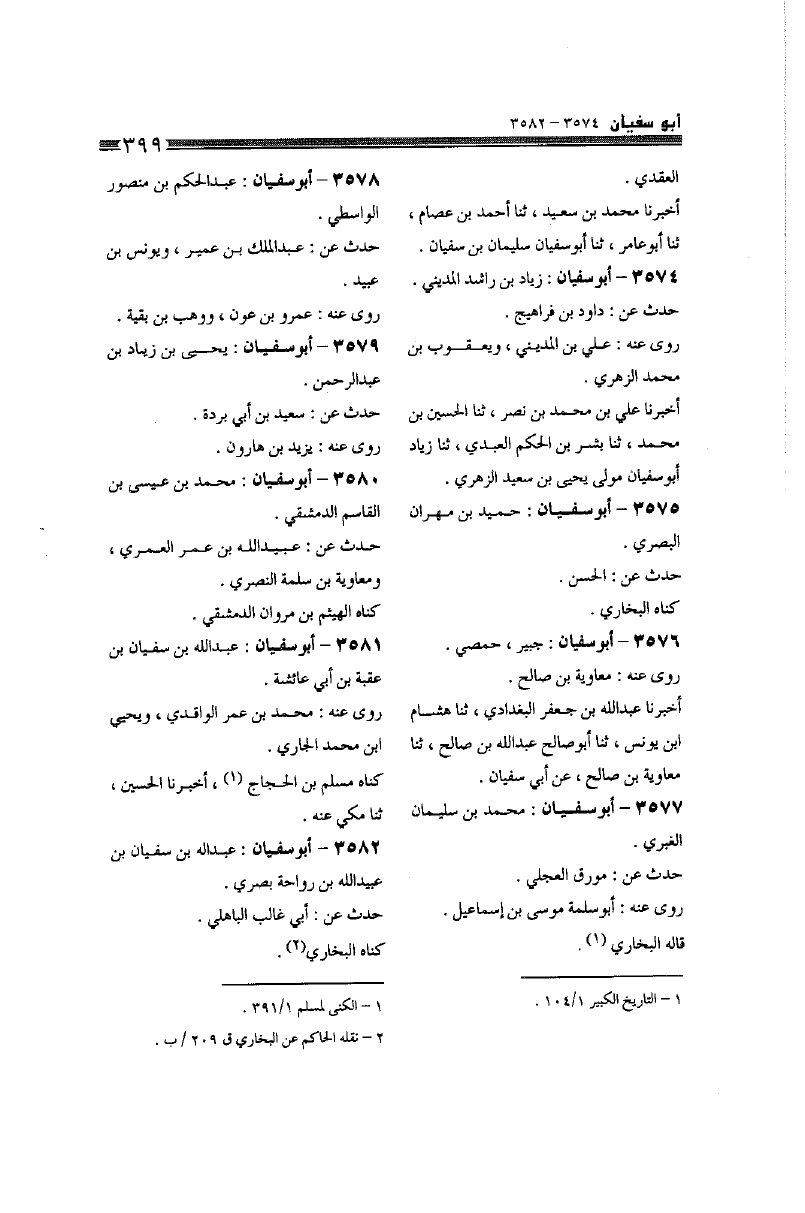 أبو سفيان ٣٥٧٤ – ٣٥٨٢
٣٩٩
العقدي .
أخبرنا محمد بن سعيد ، ثنا أحمد بن عصام ،
ثنا أبوعامر ، ثنا أبوسفيان سليمان بن سفيان .
٣٥٧٤ – أبوسفيان : زياد بن راشد المديني .
حدث عن : داود بن فراهيج .
روى عنه : علي بن المديني ، ويعقوب بن
محمد الزهري .
أخبرنا علي بن محمد بن نصر ، ثنا الحسين بن
محمد ، ثنا بشر بن الحكم العبدي ، ثنا زياد
أبوسفيان مولى يحيى بن سعيد الزهري .
٣٥٧٥ – أبوسفيان : حميد بن مهران
البصري .
حدث عن : الحسن .
كناه البخاري .
٣٥٧٦ – أبوسفيان : جبير ، حمصي .
روى عنه : معاوية بن صالح .
أخبرنا عبدالله بن جعفر البغدادي ، ثنا هشام
ابن يونس ، ثنا أبوصالح عبدالله بن صالح ، ثنا
معاوية بن صالح ، عن أبي سفيان .
٣٥٧٧ – أبوسفيان : محمد بن سليمان
الغبري .
حدث عن : مورق العجلي .
روى عنه : أبوسلمة موسى بن إسماعيل .
قاله البخاري (١) .
١ – التاريخ الكبير ١٠٤/١ .
٣٥٧٨ – أبوسفيان : عبدالحكم بن منصور
الواسطي .
حدث عن : عبدالملك بن عمير ، ويونس بن
عبيد .
روى عنه : عمرو بن عون ، ووهب بن بقية .
٣٥٧٩ – أبوسفيان : يحيى بن زياد بن
عبدالرحمن .
حدث عن : سعيد بن أبي بردة .
روى عنه : يزيد بن هارون .
٣٥٨٠ – أبوسفيان : محمد بن عيسى بن
القاسم الدمشقي .
حدث عن : عبيدالله بن عمر العمري ،
ومعاوية بن سلمة النصري .
كناه الهيثم بن مروان الدمشقي .
٣٥٨١ – أبوسفيان : عبدالله بن سفيان بن
عقبة بن أبي عائشة .
روى عنه : محمد بن عمر الواقدي ، ويحيي
ابن محمد الجاري .
كناه مسلم بن الحجاج (١) ، أخبرنا الحسين ،
ثنا مكي عنه .
٣٥٨٢ – أبوسفيان : عبداله بن سفيان بن
عبيدالله بن رواحة بصري .
حدث عن : أبي غالب الباهلي .
كناه البخاري(٢) .
١ – الكنى لمسلم ٣٩١/١ .
٢ – نقله الحاكم عن البخاري ق ٢٠٩ / ب .